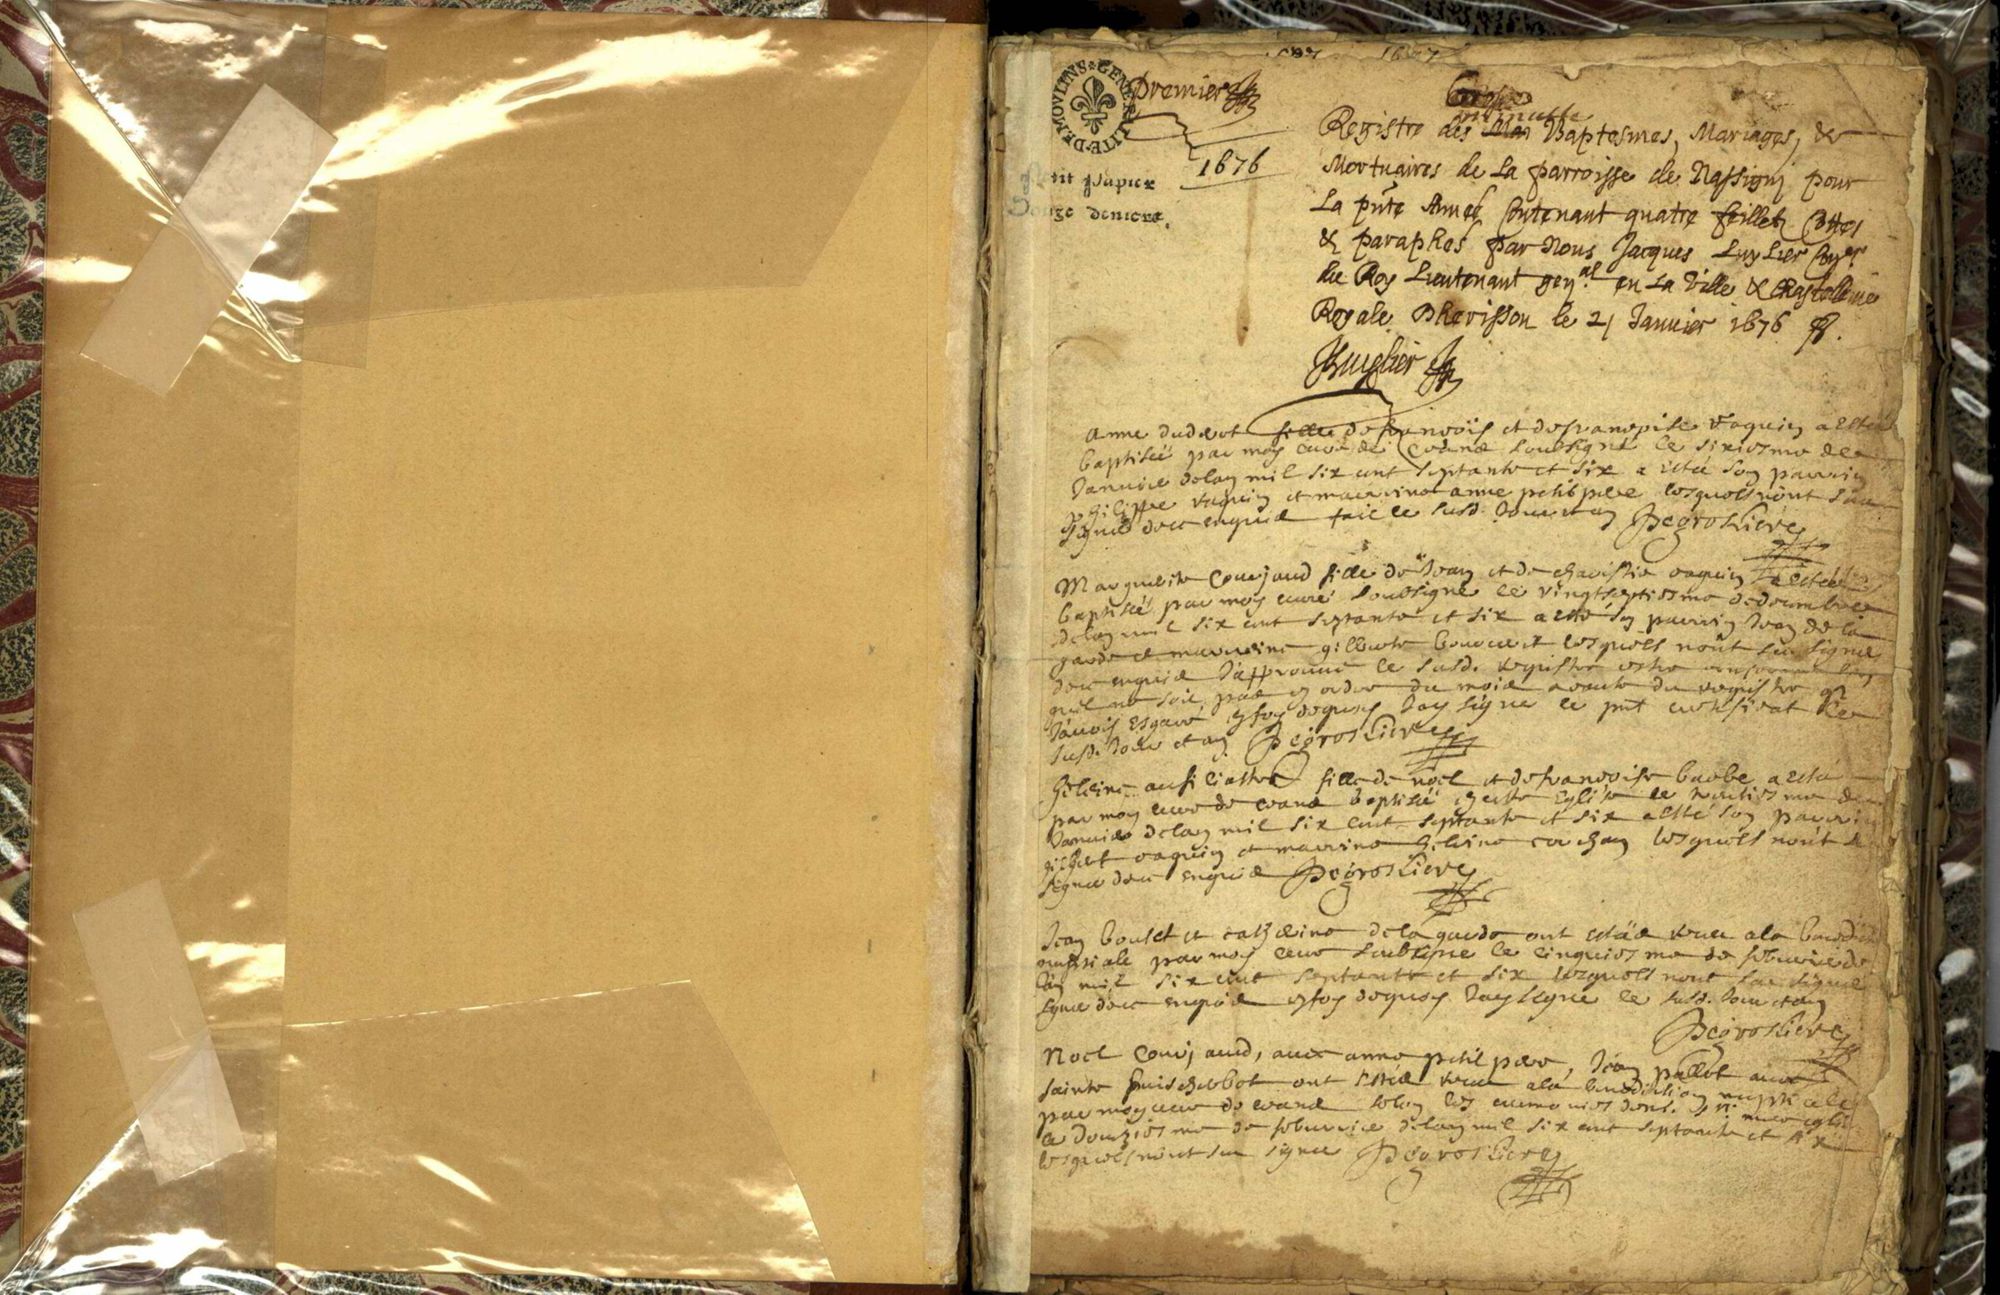 GENERALITE DE MOVLINS
Premier
1676
Petit Papier
Douze deniers.
Grosse
minutte
Registre des Baptesmes, Mariages, &
Mortuaires de La parroisse de Nassigny pour
La pnte Année Contenant quatre feillets Cottes
& paraphés par Nous Jacques Luylier Coner
du Roy Lieutenant genal en La Ville & Chastellenie
Royale Dherisson le 21 Janvier 1676
Luylier
Anne duderot fille de francois et de francoise vaquin a esté
baptisée par moy curé de soubsigné le sixiesme de
Janvier delan mil six cent septante et six a esté son parrin
philippe vaquin et marrine anne petit pere lesquels nont sceu
signé de ce enquis faic le susd. Jour et an Degrosliere
Marguerite Coujaud fille de Jean et de vaquin a esté
baptisée par moy curé soubsigné le vingtseptiesme de decembre
delan mil six cent septante et six a esté son parrin Jean de la
garde et marrine gilberte lesquels nont sceu signé
de ce enquis Japprouve le susd. registre estre
quil ne soit pas en ordre du mois a cause du registre q
Javois esgaré en foy dequoy Jay signé le pnt certificat le
susd. Jour et an Degrosliere
fille de noel et de francoise barbe a esté
par moy curé de baptisée en cette Eglise le trentiesme de
Janvier delan mil six cent septante et six a esté son parrin
gilbert vaquin et marrine lesquels nont sceu
signé de ce enquis Degrosliere
Jean boulet et catherine delagarde ont estés receu a la benediction
nuptiale par moy curé soubsigné le cinquiesme de febvrier de
lan mil six cent septante et six lesquels nont sceu signé
signé de ce enquis en foy dequoy Jay signé le susd. Jour et an
Degrosliere
Noel Coujaud, avec anne petit pere, Jean pallot avec
ont estés receu a la benediction nuptiale
par moy curé de selon les ceremonies de nre mere eglise
le douziesme de febvrier delan mil six cent septante et six
lesquels nont sceu signé Degrosliere